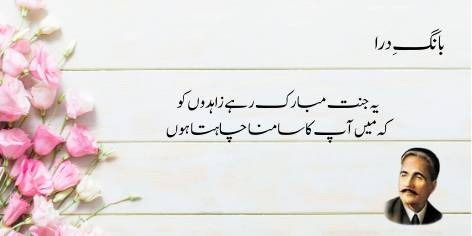 بانگِ درا
یہ جنت مبارک رہے زاہدوں کو
کہ میں آپ کا سامنا چاہتا ہوں